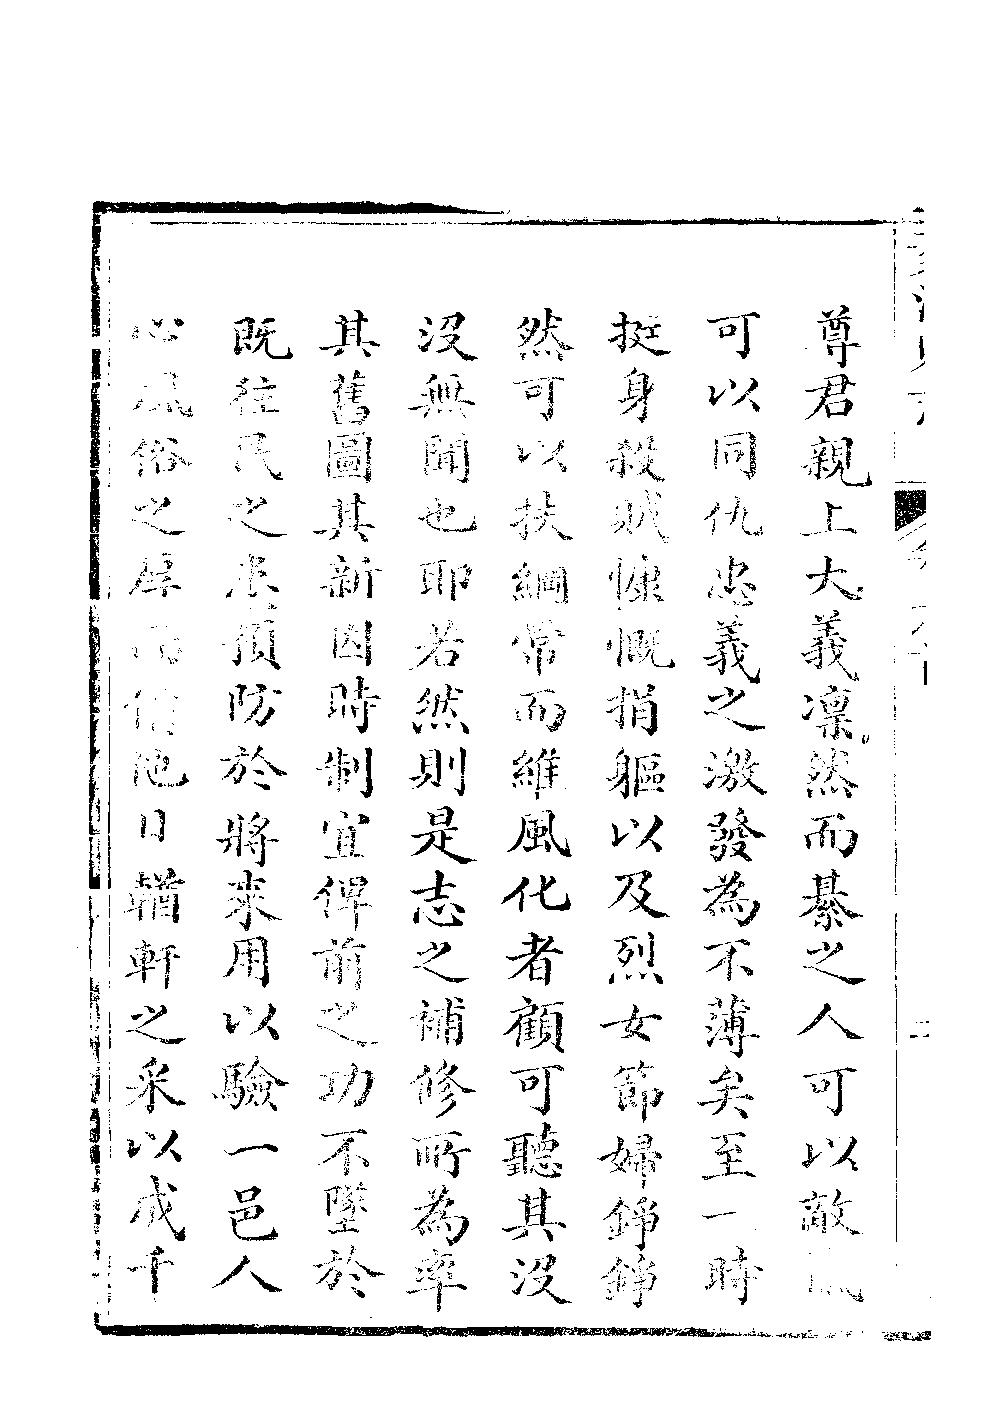 尊君親上大義凛然而綦之人可以敵愾
可以同仇忠義之激發為不薄矣至一時
挺身殺賊慷慨捐軀以及烈女節婦錚錚
然可以扶綱常而維風化者顧可聽其沒
沒無聞也耶若然則是志之補修所為率
其舊圖其新因時制宜俾前之功不墜於
既往民之患預防於將來用以驗一邑人
心風俗之厚而備他日輶軒之采以成千